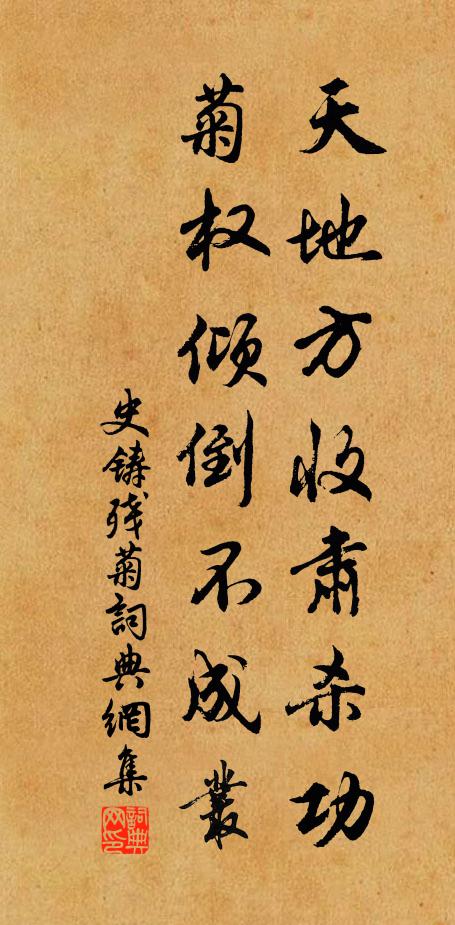 天地方收肃杀功
菊权倾倒不成叢
史鋳残菊詞典網集
詞典网印